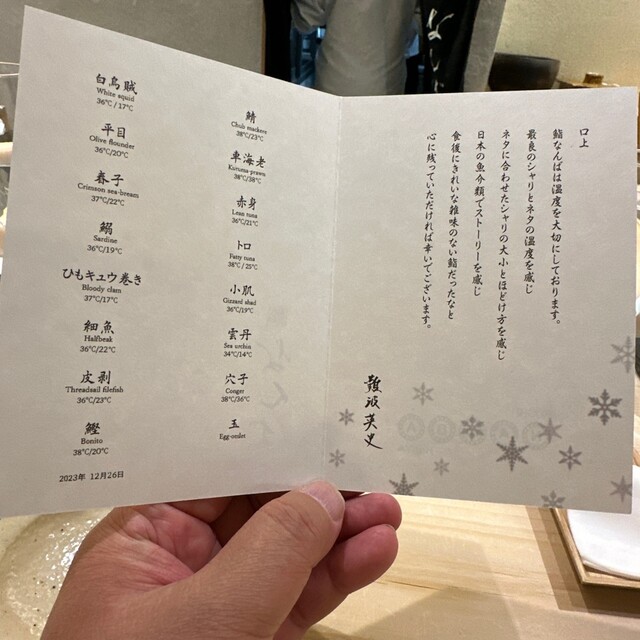 白烏賊
White squid
36℃ / 17℃
平目
Olive flounder
36℃/20℃
春子
Crimson sea-bream
37℃/22℃
鰯
Sardine
36℃/19℃
ひもキュウ巻き
Bloody clam
37℃/17℃
細魚
Halfbeak
36℃/22℃
皮剥
Threadsail filefish
36℃/23℃
鰹
Bonito
38℃/20℃
2023年 12月26日
鯖
Chub mackere
38℃/23℃
車海老
Kuruma-prawn
38℃/38℃
赤身
Lean tuna
36℃/21℃
トロ
Fatty tuna
38℃ / 25℃
小肌
Gizzard shad
36℃/19℃
雲丹
Sea urchin
34℃/14℃
穴子
Conger
38℃/36℃
玉
Egg-omlet
口上
鮨なんばは温度を大切にしております。
最良のシャリとネタの温度を感じ
ネタに合わせたシャリの大小とほどけ方を感じ
日本の魚分類でストーリーを感じ
食後にきれいな雑味のない鮨だったなと
心に残っていただければ幸いでございます。
難波英史